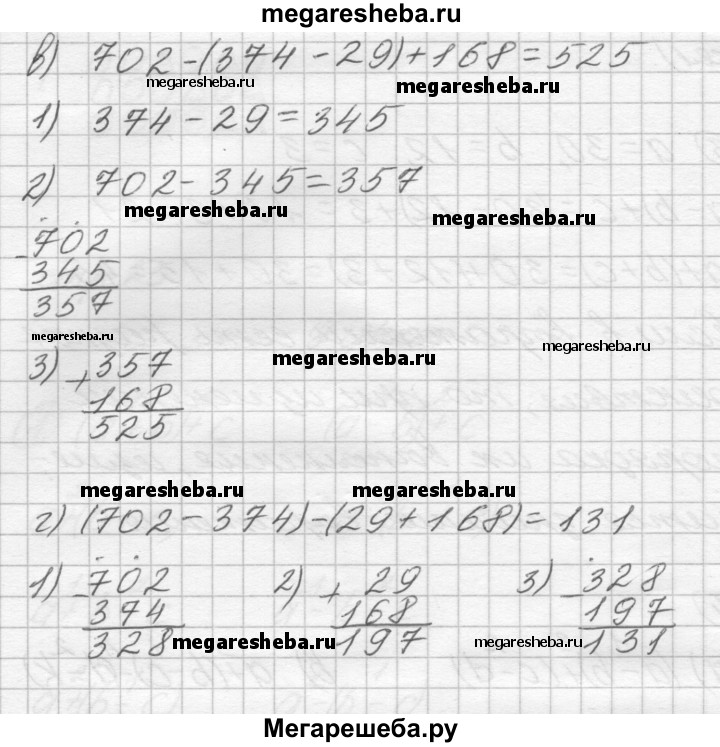 megaresheba.ru
в) 702-(374-29)+168=525
megaresheba.ru megaresheba.ru
1) 374-29=345
2) 702-345=357
megaresheba.ru megaresheba.ru
-702
345
357
megaresheba.ru megaresheba.ru megaresheba.ru
3) +357
168
525
megaresheba.ru megaresheba.ru
г) (702-374)-(29+168)=131
1) -702 2) +29 3) -328
374 168 197
328 197 131
megaresheba.ru megaresheba.ru
Мегарешеба.ру